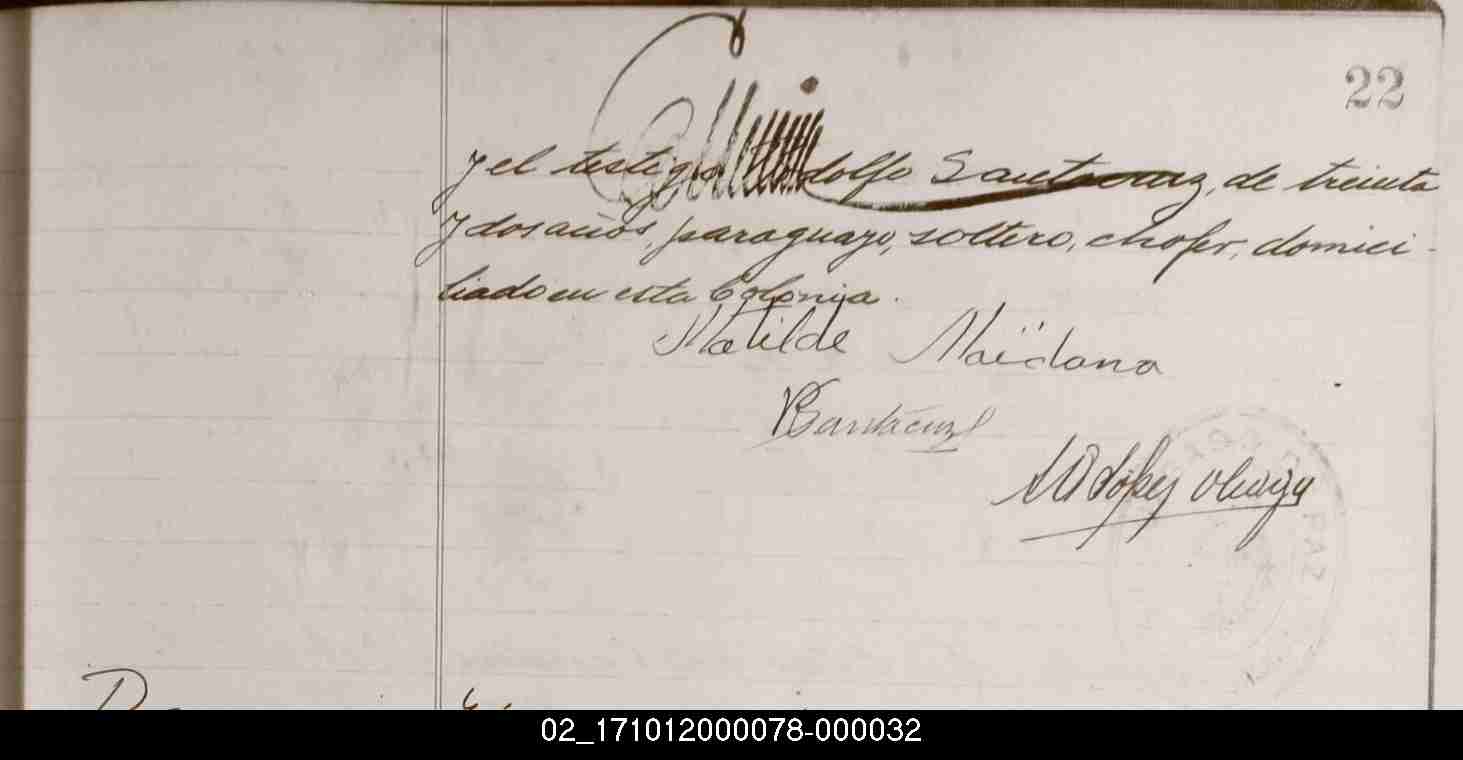 22
y el testigo Adolfo Santacruz, de treinta
y dos años, paraguayo, soltero, chofer, domici-
liado en esta Colonia.
Matilde Maïdana
Santacruz
PAZ
02_171012000078-000032